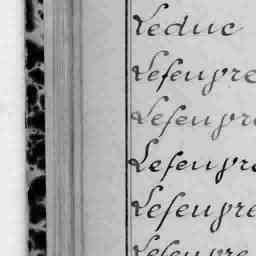 Leduc
Lefeuvre
Lefeuvre
Lefeuvre
Lefeuvre
Lefeuvre